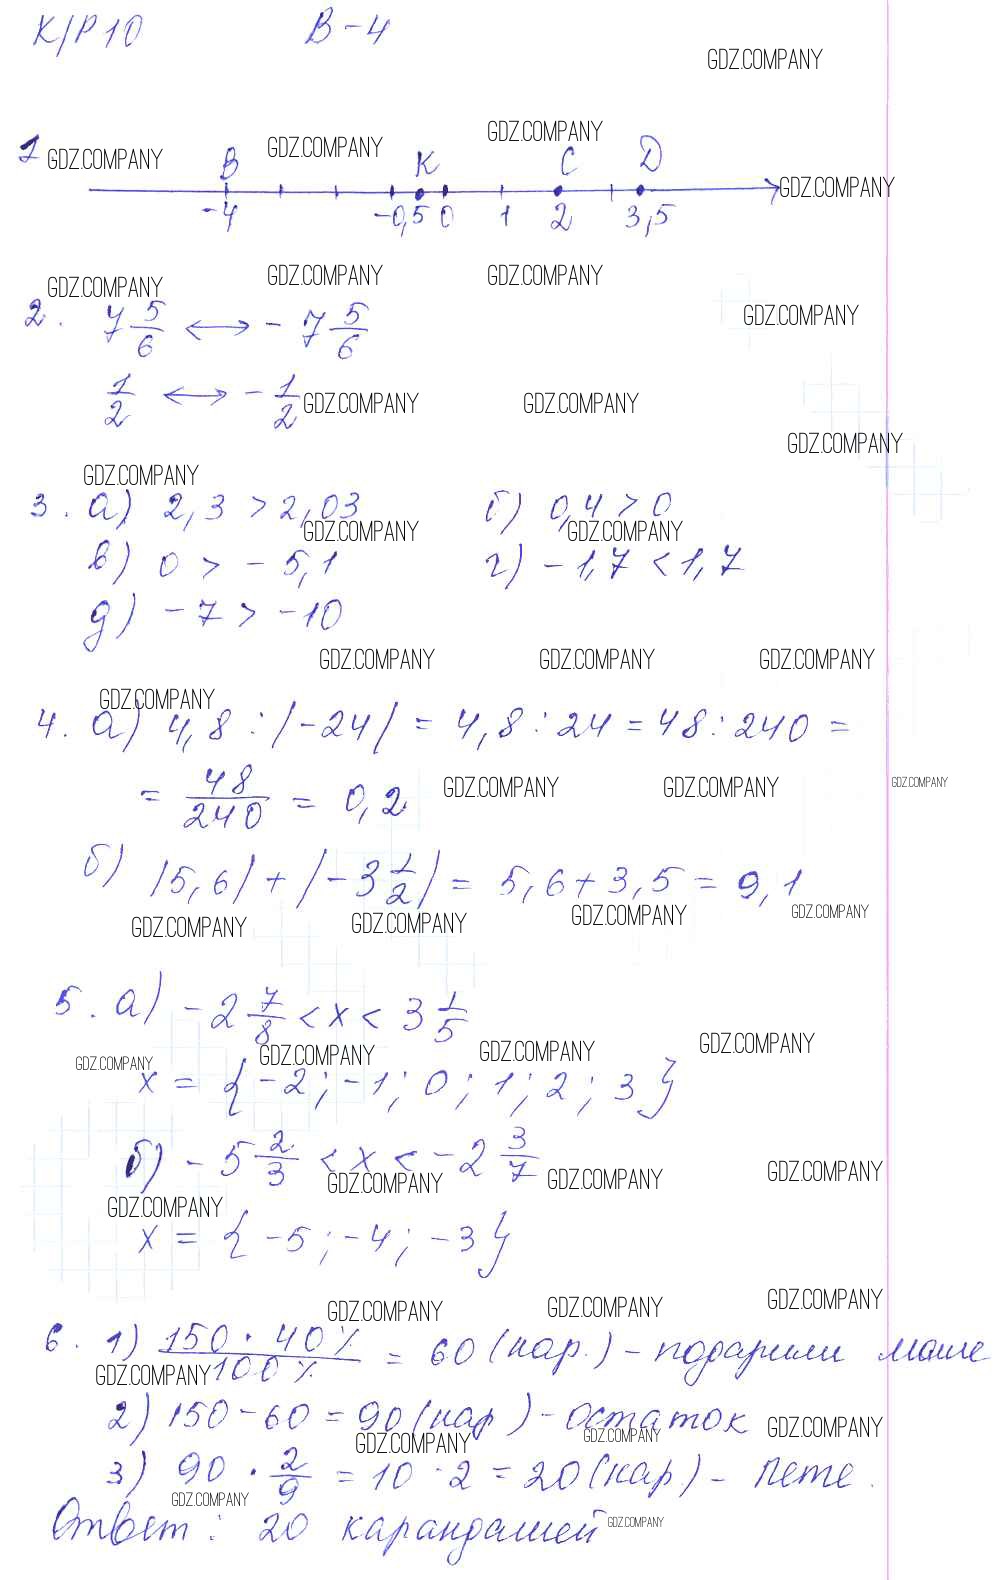 К/Р 10 В-4
GDZ.COMPANY
1 GDZ.COMPANY B GDZ.COMPANY K GDZ.COMPANY C D
GDZ.COMPANY
-4 -0,5 0 1 2 3,5
GDZ.COMPANY GDZ.COMPANY GDZ.COMPANY
2. 7 5/6 ↔ -7 5/6 GDZ.COMPANY
1/2 ↔ -1/2 GDZ.COMPANY GDZ.COMPANY
GDZ.COMPANY
GDZ.COMPANY
3. а) 2,3 > 2,03 б) 0,4 > 0
GDZ.COMPANY GDZ.COMPANY
в) 0 > -5,1 г) -1,7 < 1,7
д) -7 > -10
GDZ.COMPANY GDZ.COMPANY GDZ.COMPANY
GDZ.COMPANY
4. а) 4,8 : |-24| = 4,8 : 24 = 48 : 240 =
= 48/240 = 0,2 GDZ.COMPANY GDZ.COMPANY GDZ.COMPANY
б) |5,6| + |-3 1/2| = 5,6 + 3,5 = 9,1
GDZ.COMPANY GDZ.COMPANY GDZ.COMPANY GDZ.COMPANY
5. а) -2 7/8 < x < 3 1/5
GDZ.COMPANY GDZ.COMPANY GDZ.COMPANY GDZ.COMPANY
x = {-2; -1; 0; 1; 2; 3}
б) -5 2/3 < x < -2 3/7
GDZ.COMPANY GDZ.COMPANY GDZ.COMPANY
GDZ.COMPANY
x = {-5; -4; -3}
GDZ.COMPANY GDZ.COMPANY GDZ.COMPANY
6. 1) 150 · 40%/100% = 60 (кар.) - подарили Маше
GDZ.COMPANY
2) 150 - 60 = 90 (кар) - остаток GDZ.COMPANY
GDZ.COMPANY GDZ.COMPANY
3) 90 · 2/9 = 10 · 2 = 20 (кар.) - Пете.
GDZ.COMPANY
Ответ: 20 карандашей GDZ.COMPANY